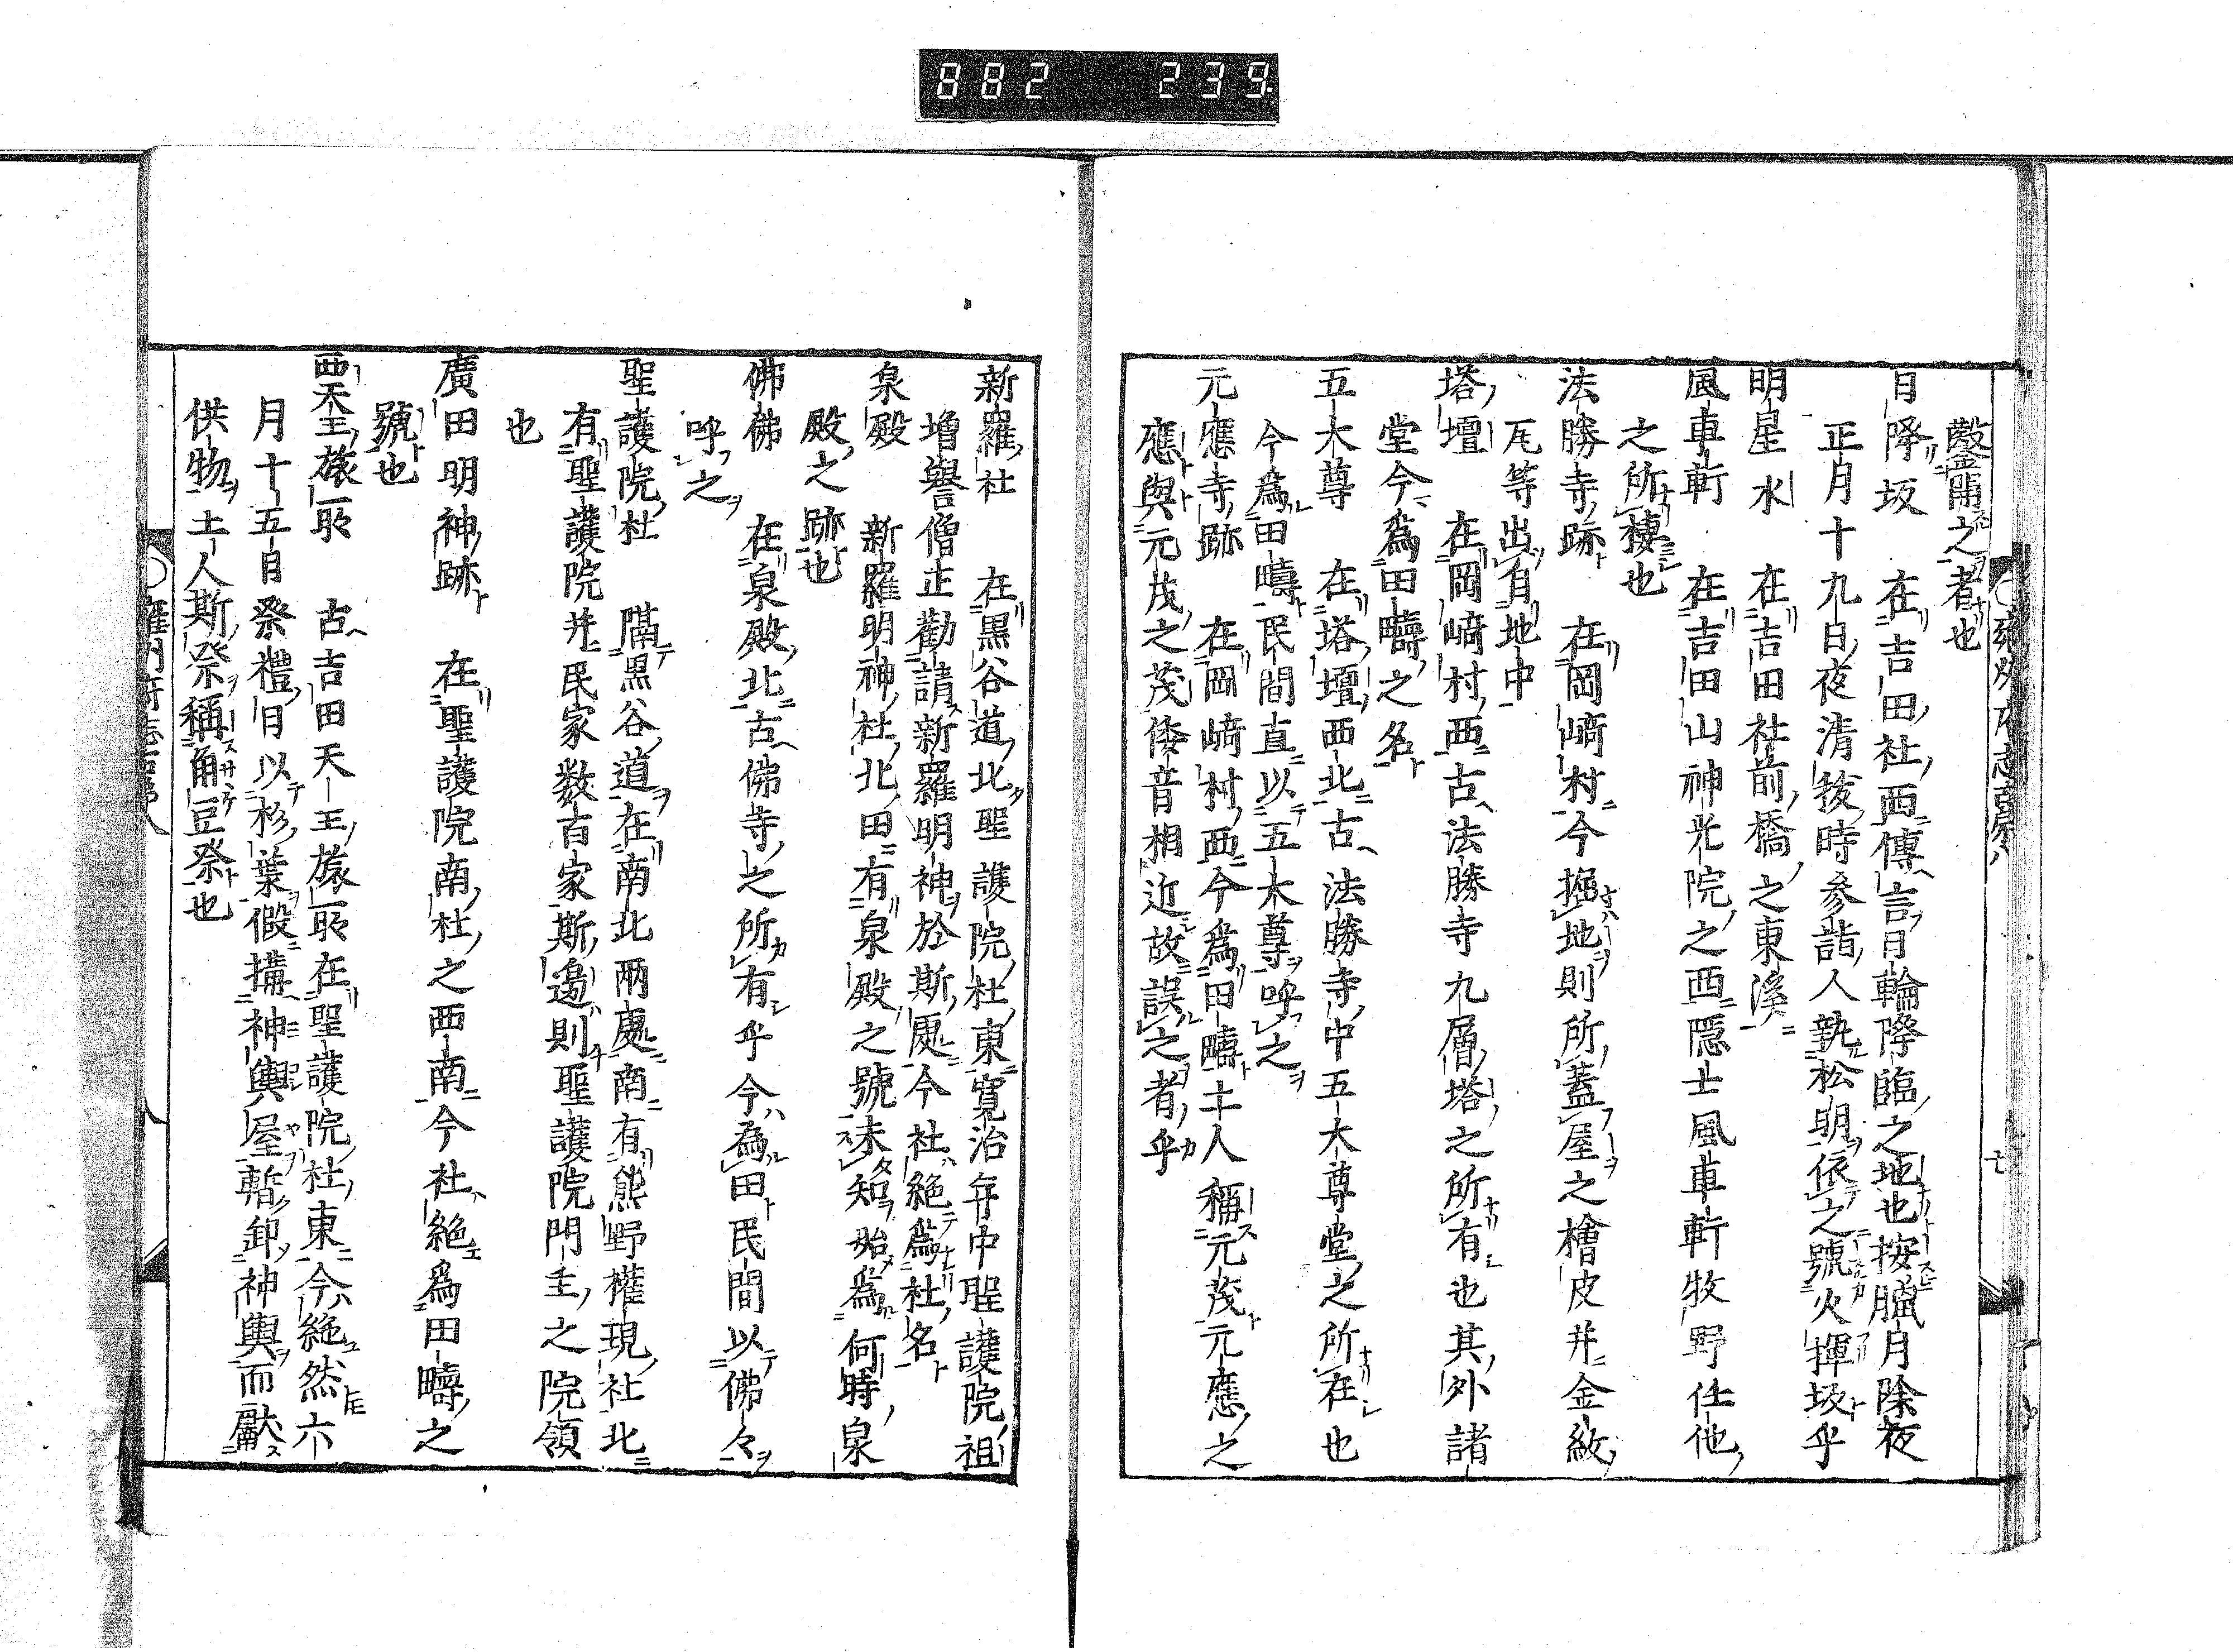 882 239
鑿開之者也
日降坂 在吉田社西傳言日輪降臨之地也按臘月除夜
正月十九日夜清祓時參詣人執松明依之號火揮坂乎
明星水 在吉田社前橋之東溪
風車軒 在吉田山神光院之西隠士風車軒牧野任他
之所棲也
法勝寺跡 在岡﨑村今掘地則所蓋屋之檜皮并金紋
瓦等出有地中
塔壇 在岡﨑村西古法勝寺九層塔之所有也其外諸
堂今爲田疇之名
五大尊 在塔壇西北古法勝寺中五大尊堂之所在也
今爲田疇民間直以五大尊呼之
元應寺跡 在岡﨑村西今爲田疇土人稱元茂元應之
應與元茂之茂倭音相近故誤之者乎
新羅社 在黒谷道北聖護院杜東寛治年中聖護院祖
増譽僧正勸請新羅明神於斯處今社絶爲杜名
泉殿 新羅明神杜北田有泉殿之號未知始爲何時泉
殿之跡也
佛佛 在泉殿北古佛寺之所有乎今為田民間以佛々
呼之
聖護院杜 隔黒谷道在南北兩處南有熊野權現社北
有聖護院并民家数百家斯邉則聖護院門主之院領
也
廣田明神跡 在聖護院南杜之西南今社絶爲田疇之
號也
西天王旅所 古吉田天王旅所在聖護院杜東今絶然六
月十五日祭禮日以杉葉假搆神輿屋暫卸神輿而獻
供物土人斯祭稱角豆祭也